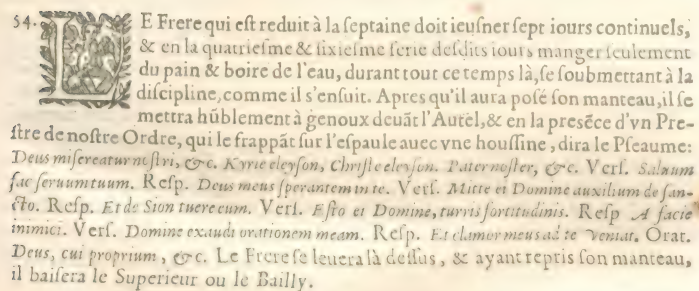 54. LE Frere qui eſt reduit à la ſeptaine doit ieuſner ſept iours continuels,
& en la quatrieſme & ſixieſme ferie deſdits iours manger ſeulement
du pain & boire de l'eau, durant tout ce temps là, ſe ſoubmettant à la
diſcipline, comme il s'enſuit. Apres qu'il aura poſé ſon manteau, il ſe
mettra hũblement à genoux deuãt l'Autel, & en la preſẽce d'vn Pre-
ſtre de noſtre Ordre, qui le frappãt ſur l'eſpaule auec vne houſſine, dira le Pſeaume:
Deus miſereatur noſtri, &c. Kyrie eleyſon, Chriſte eleyſon. Pater noſter, &c. Verſ. Saluum
fac ſeruum tuum. Reſp. Deus meus ſperantem in te. Verſ. Mitte et Domine auxilium de ſan-
cto. Reſp. Et de Sion tuere eum. Verſ. Eſto et Domine, turris fortitudinis. Reſp A facie
inimici. Verſ. Domine exaudi orationem meam. Reſp. Et clamor meus ad te veniat. Orat.
Deus, cui proprium, &c. Le Frere ſe leuera là deſſus, & ayant repris ſon manteau,
il baiſera le Superieur ou le Bailly.